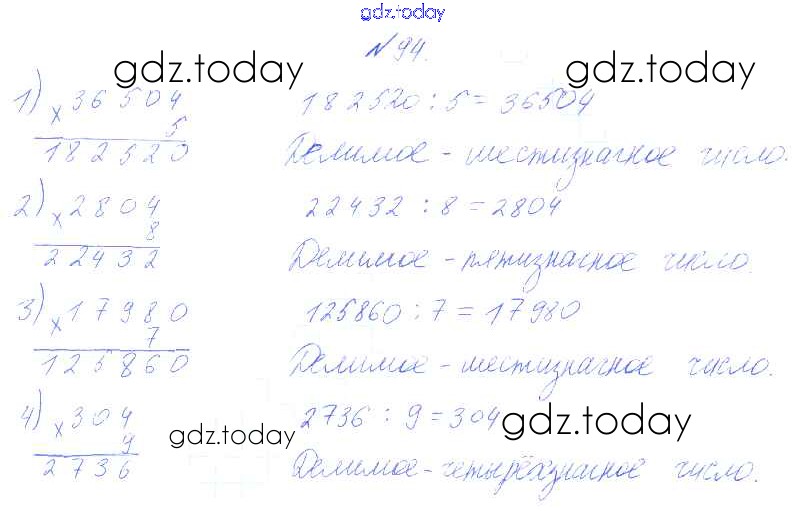 gdz.today
№94.
gdz.today gdz.today
1) × 36504 182520 : 5 = 36504
5
182520 Делимое - шестизначное число.
2) × 2804 22432 : 8 = 2804
8
22432 Делимое - пятизначное число.
3) × 17980 125860 : 7 = 17980
7
125860 Делимое - шестизначное число.
4) × 304 2736 : 9 = 304 gdz.today
9 gdz.today
2736 Делимое - четырёхзначное число.